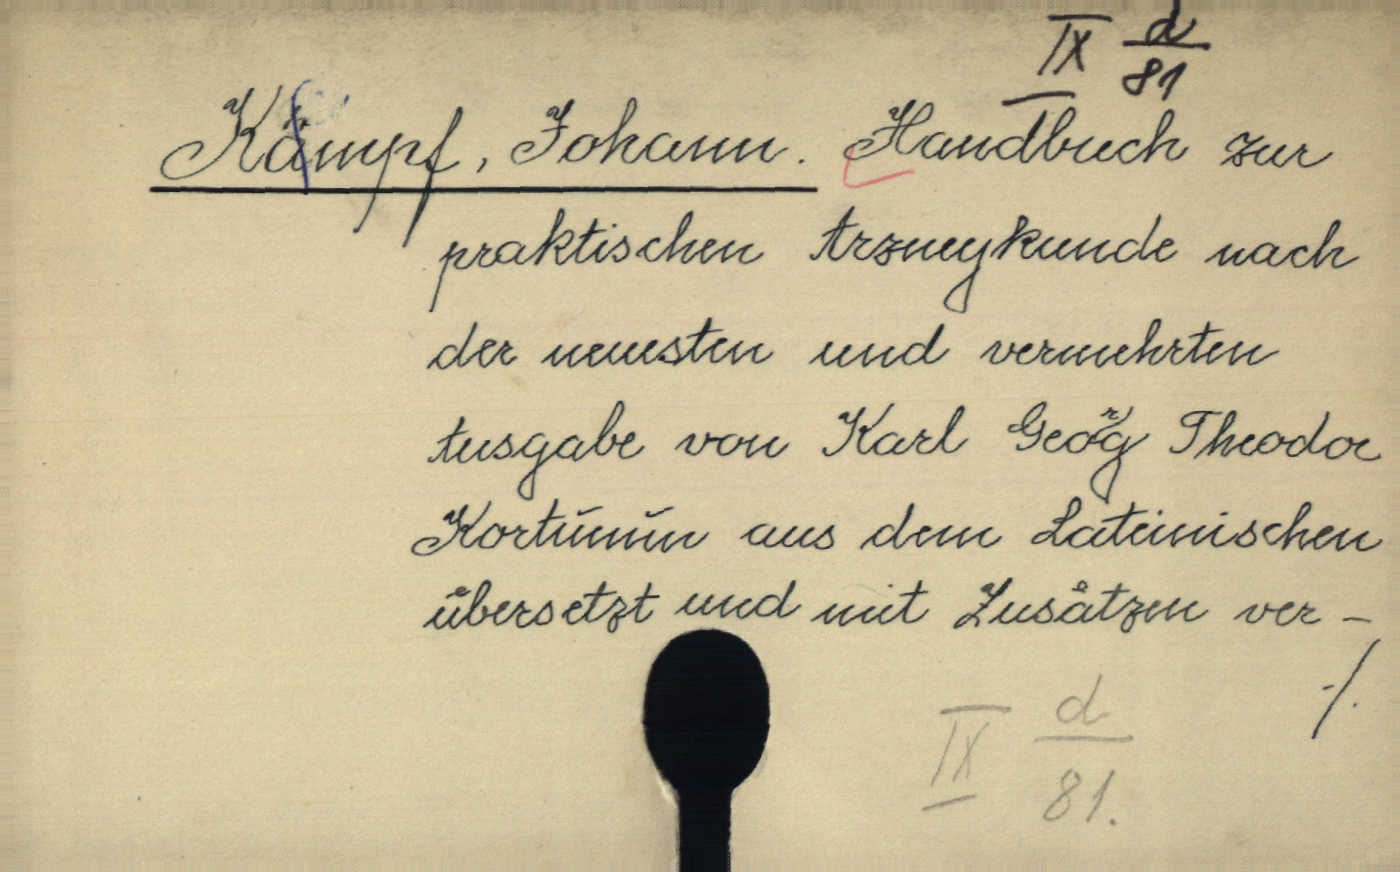 IX d/81
Kämpf, Johann. Handbuch zur
praktischen Arzneykunde nach
der neuesten und vermehrten
Ausgabe von Karl Georg Theodor
Kortŭmŭn aus dem Lateinischen
übersetzt und mit Zusätzen ver-
-/.
IX d/81.